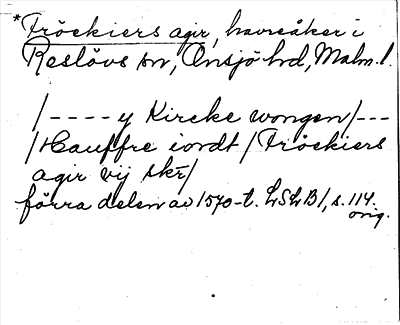 *Fröckiers agir, havreåker i
Reslövs sn, Onsjö hd, Malm. l.
/---- y Kircke wongen/---
/Hauffre iordt/Fröckiers
agir vij skr/
förra delen av 1570-t. LSLB1, s. 114
orig.